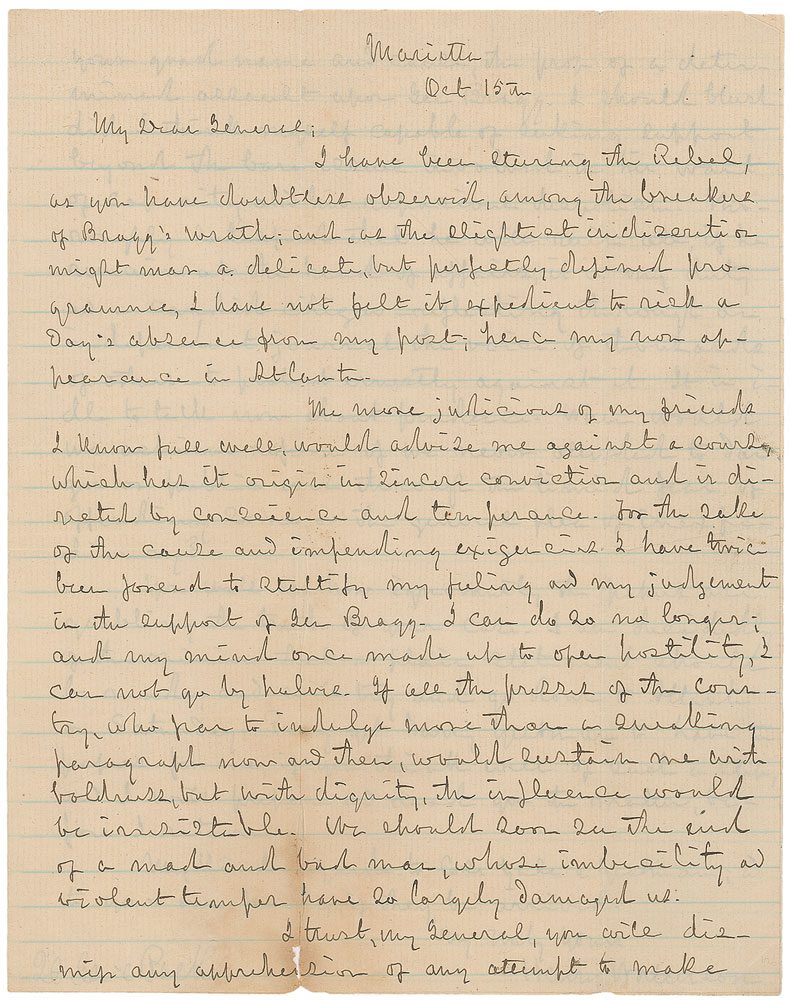 Marietta
Oct 15th
My Dear General;
I have been steering the Rebel,
as you have doubtless observed, among the breakers
of Bragg's wrath; and, as the slightest indiscretion
might mar a delicate, but perfectly defined pro-
gramme, I have not felt it expedient to risk a
Day's absence from my post; hence my non ap-
pearance in Atlanta.
The more judicious of my friends
I know full well, would advise me against a course,
which has its origin in sincere conviction and is di-
rected by conscience and temperance. For the sake
of the cause and impending exigencies I have twice
been forced to stultify my feeling and my judgement
in the support of Gen Bragg. I can do so no longer;
and my mind once made up to open hostility, I
can not go by halves. If all the presses of the coun-
try, who fear to indulge more than a snarling
paragraph now and then, would sustain me with
boldness, but with dignity, the influence would
be irresistable. We should soon see the end
of a mad and bad man, whose imbecility ad
violent temper have so largely damaged us.
I trust, my General, you will dis-
miss any apprehension of any attempt to make